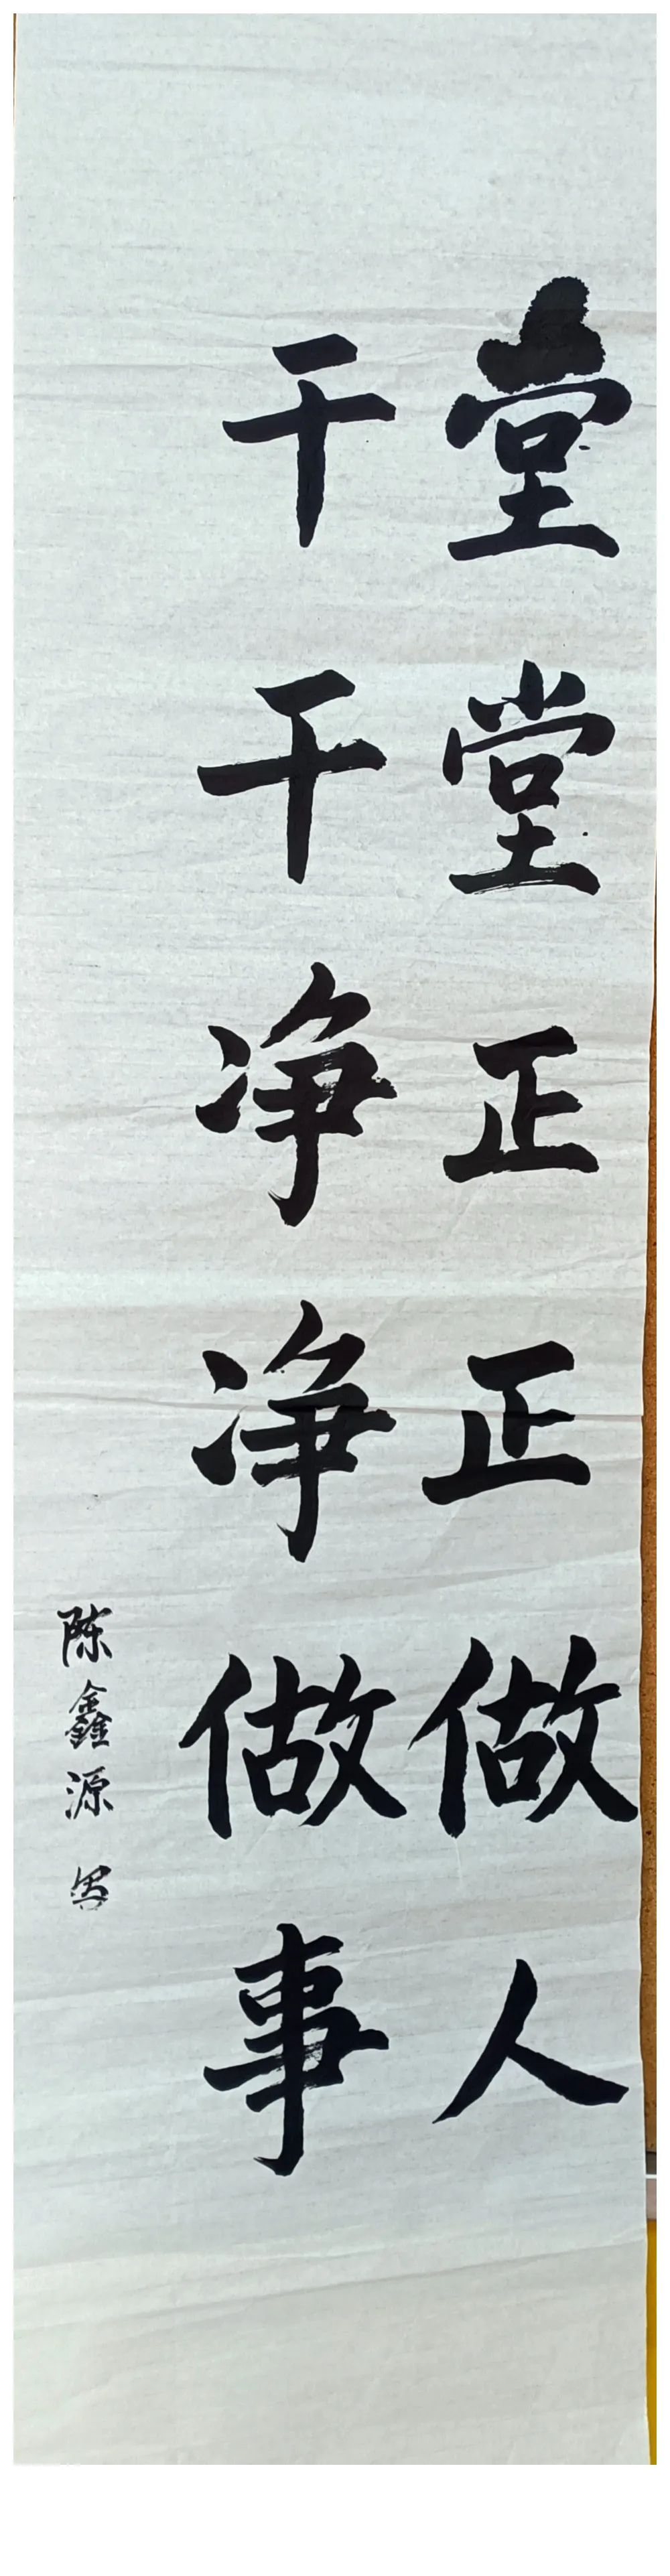 堂堂正正做人
干干净净做事
陈鑫源